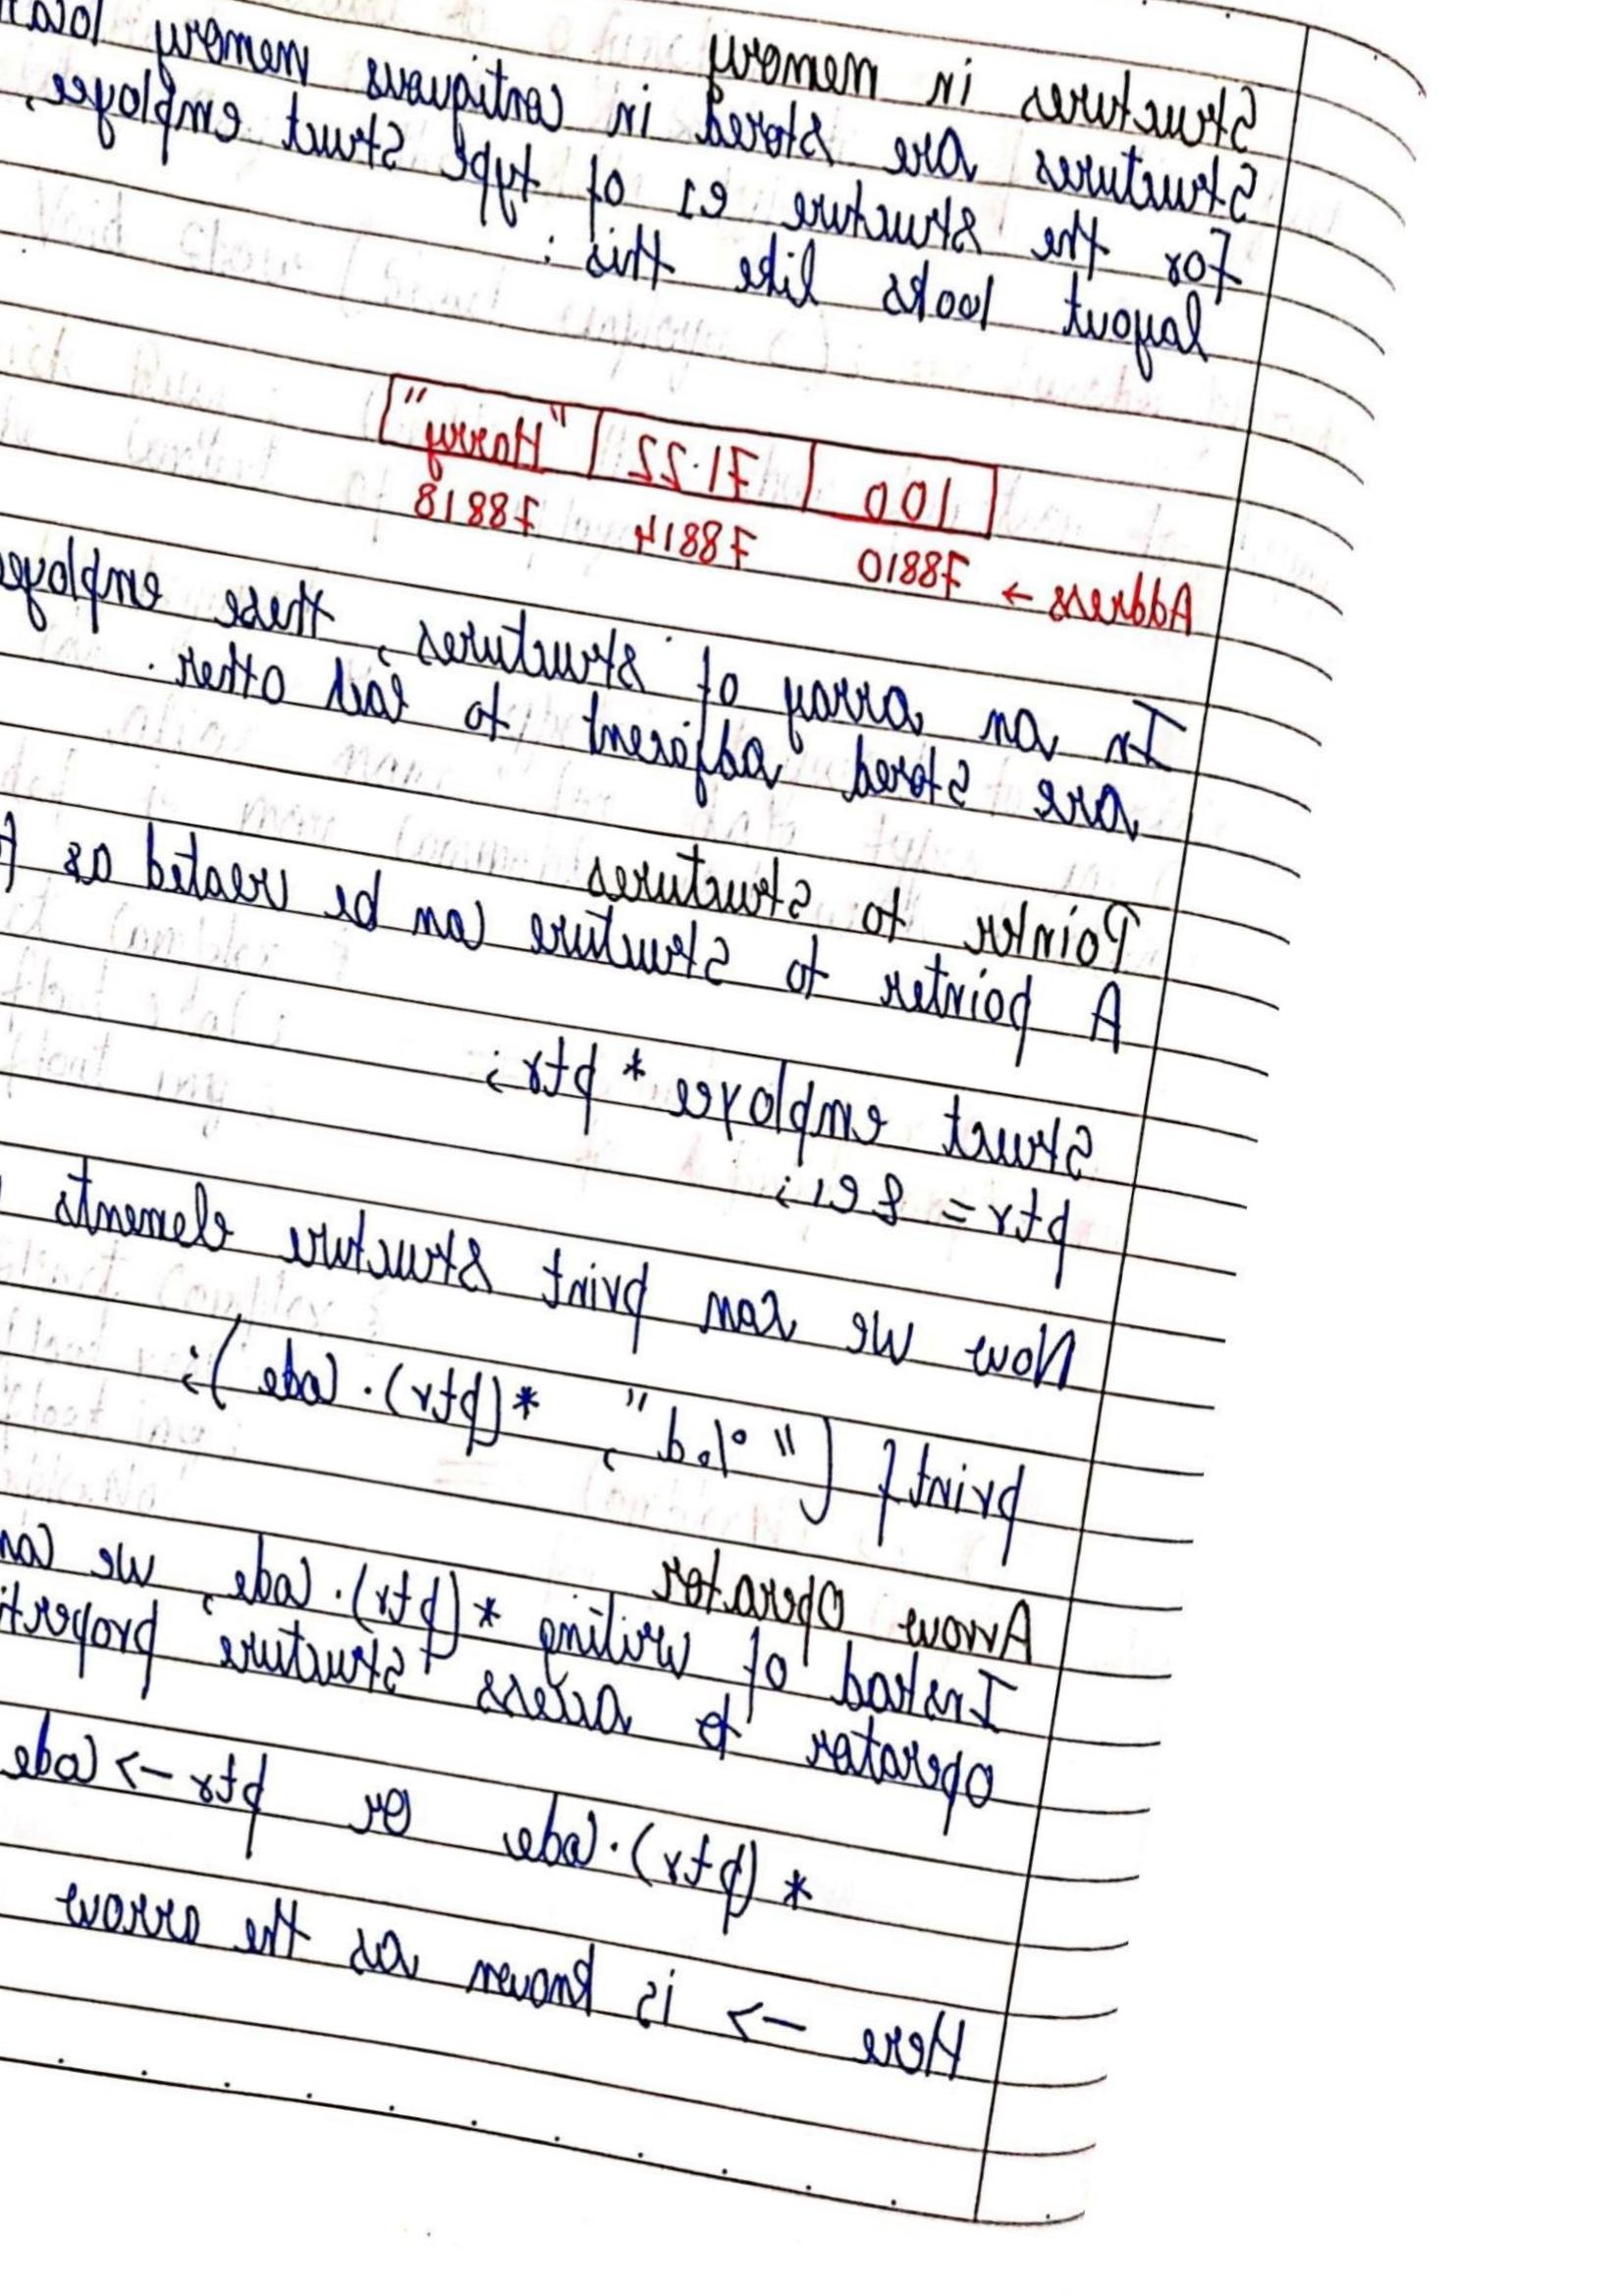 Structures in memory
Structures are stored in contiguous memory loca
For the structure e1 of type struct employee,
layout looks like this :
100 71.22 "Harry"
Address → 78810 78814 78818
In an array of structures, these employe
are stored adjacent to each other .
Pointer to structures
A pointer to structure can be created as f
Struct employee * ptr;
ptr = &e1;
Now we can print structure elements
printf ("%d", *(ptr).code );
Arrow Operator
Instead of writing *(ptr).code, we can
operator to access structure properti
*(ptr).code or ptr->code
Here -> is known as the arrow